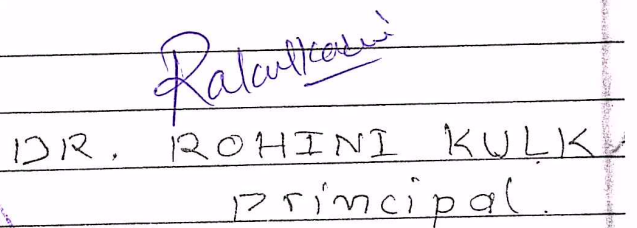 DR. ROHINI KULK
Principal.